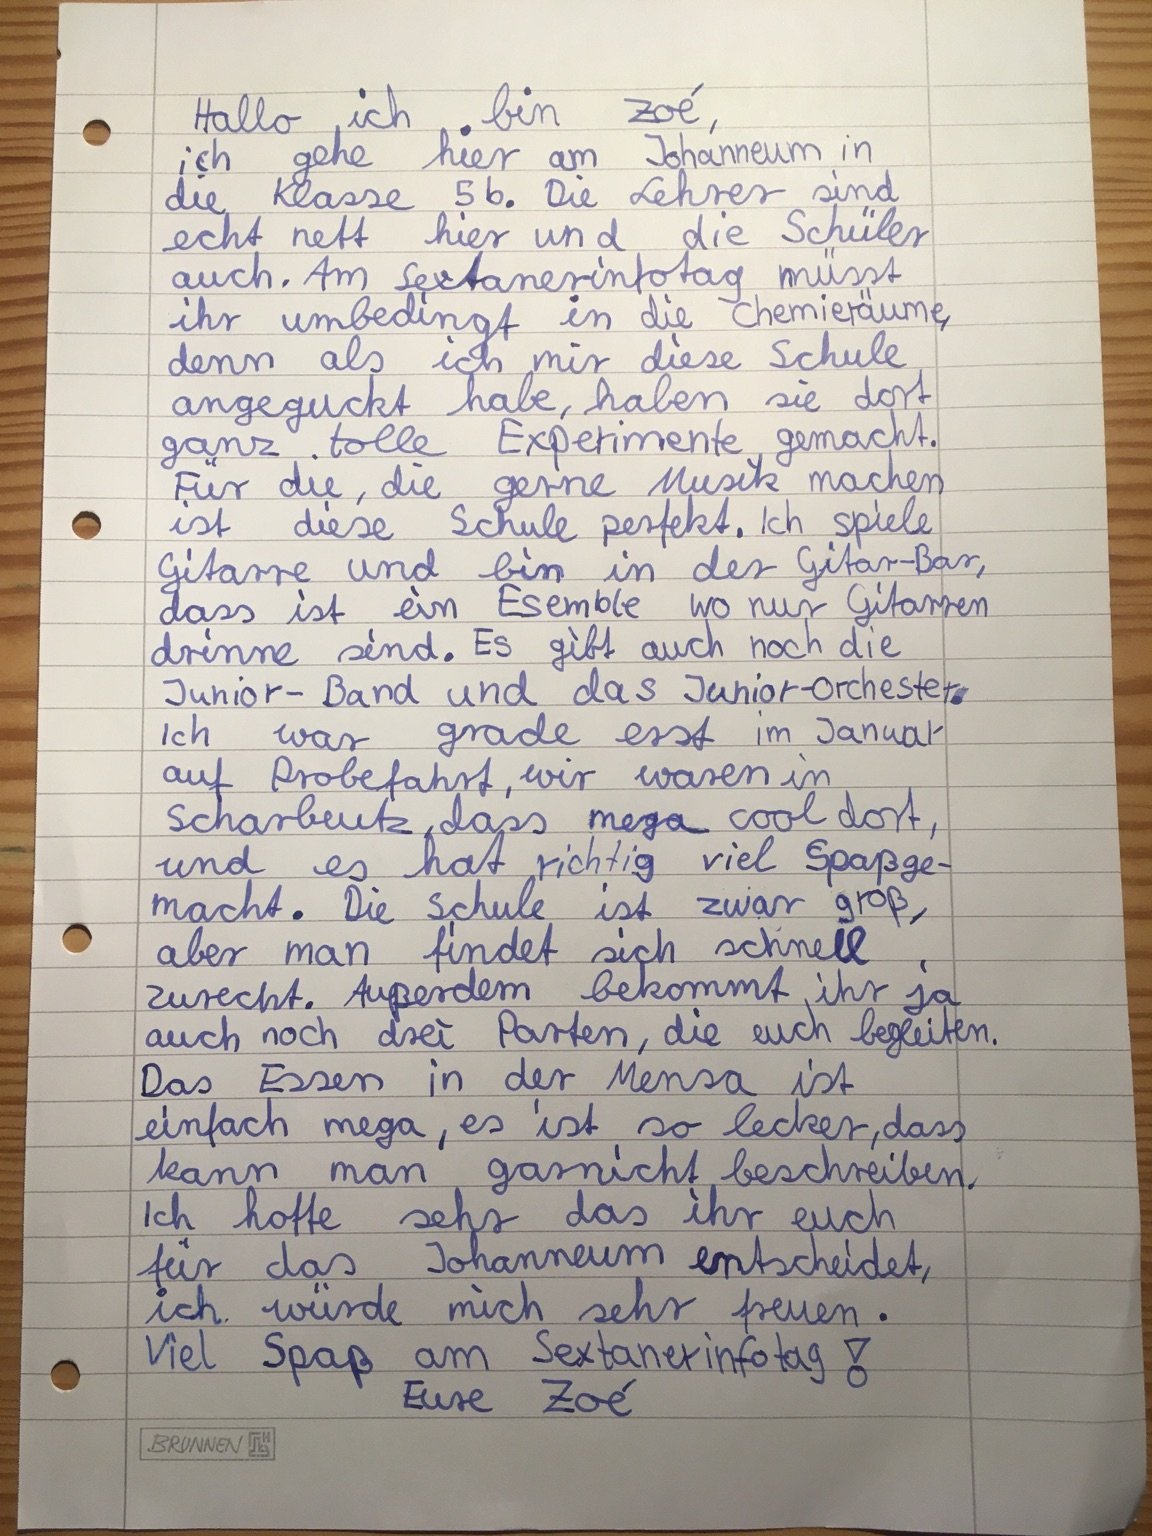 Hallo ich bin Zoé,
ich gehe hier am Johanneum in
die Klasse 5b. Die Lehrer sind
echt nett hier und die Schüler
auch. Am Sextanerinfotag müsst
ihr umbedingt in die Chemieräume,
denn als ich mir diese Schule
angeguckt habe, haben sie dort
ganz tolle Experimente gemacht.
Für die, die gerne Musik machen
ist diese Schule perfekt. Ich spiele
Gitarre und bin in der Gitar-Bar,
dass ist ein Esemble wo nur Gitarren
drinne sind. Es gibt auch noch die
Junior-Band und das Junior-Orchester.
Ich war grade erst im Januar
auf Probefahrt, wir waren in
Scharbeutz, dass mega cool dort,
und es hat richtig viel Spaß ge-
macht. Die Schule ist zwar groß,
aber man findet sich schnell
zurecht. Außerdem bekommt ihr ja
auch noch drei Parten, die euch begleiten.
Das Essen in der Mensa ist
einfach mega, es ist so lecker, dass
kann man garnicht beschreiben.
Ich hoffe sehr das ihr euch
für das Johanneum entscheidet,
ich würde mich sehr freuen.
Viel Spaß am Sextanerinfotag!
Eure Zoé
BRUNNEN